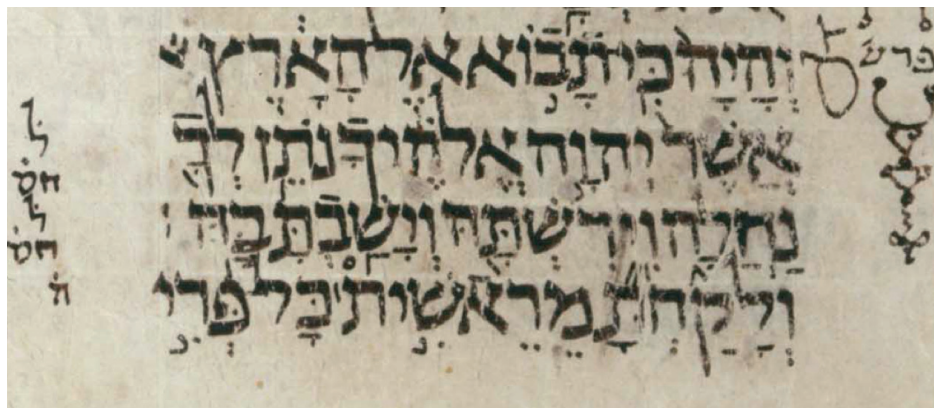 וְהָיָה כִּי תָבוֹא אֶל הָאָרֶץ
אֲשֶׁר יְהוָה אֱלֹהֶיךָ נֹתֵן לְךָ
נַחֲלָה וִירִשְׁתָּהּ וְיָשַׁבְתָּ בָּהּ
וְלָקַחְתָּ מֵרֵאשִׁית כָּל פְּרִי
פרש
ל
חס
ל
חס